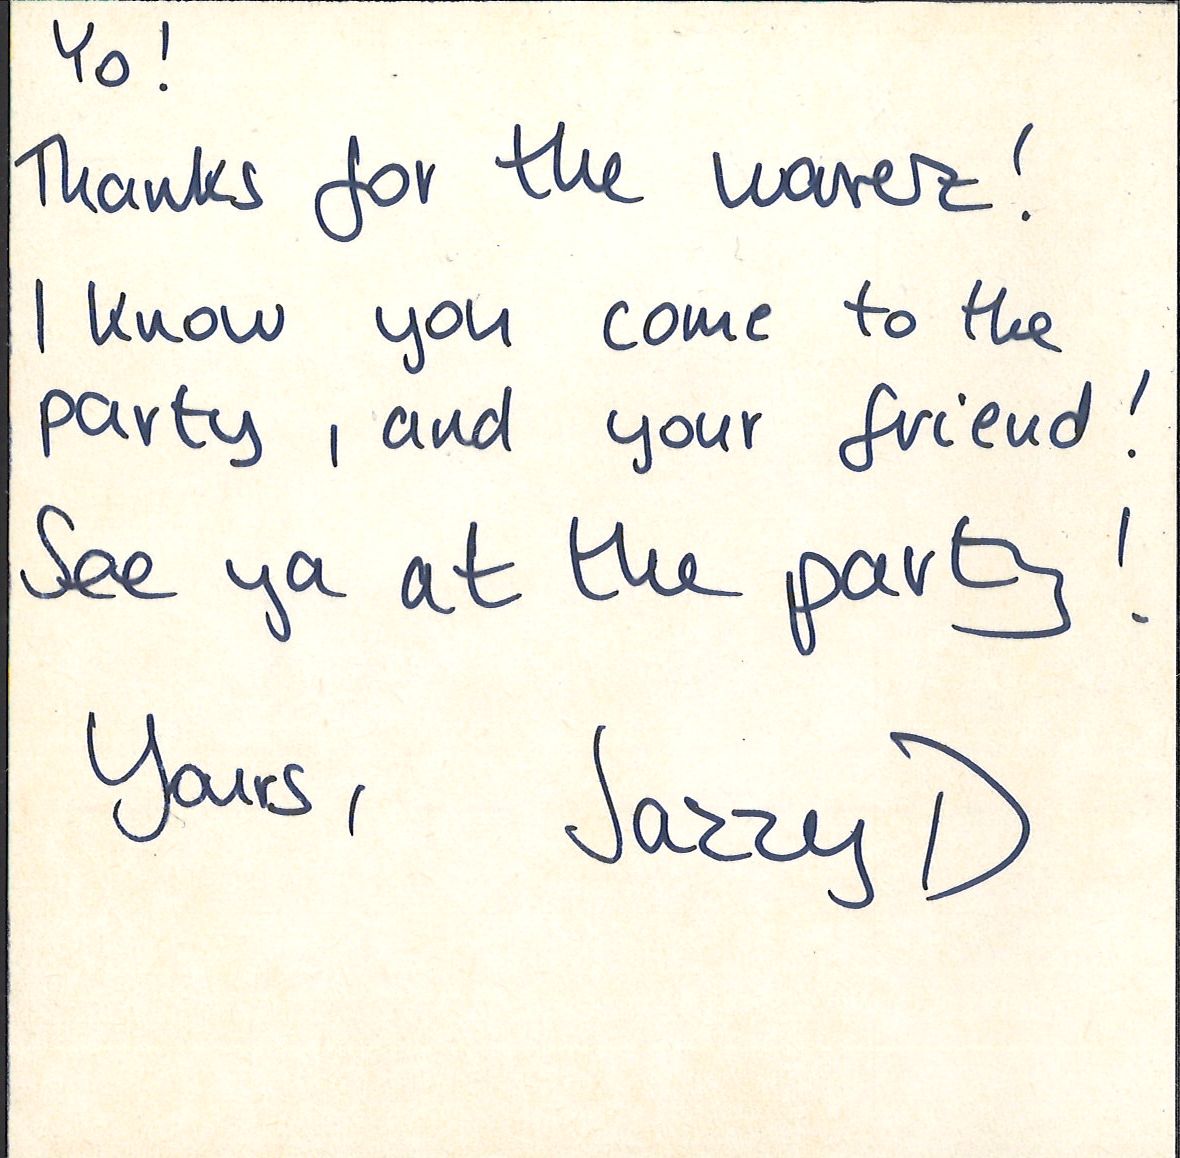 Yo!
Thanks for the warez!
I know you come to the
party, and your friend!
See ya at the party!
Yours, Jazzy D